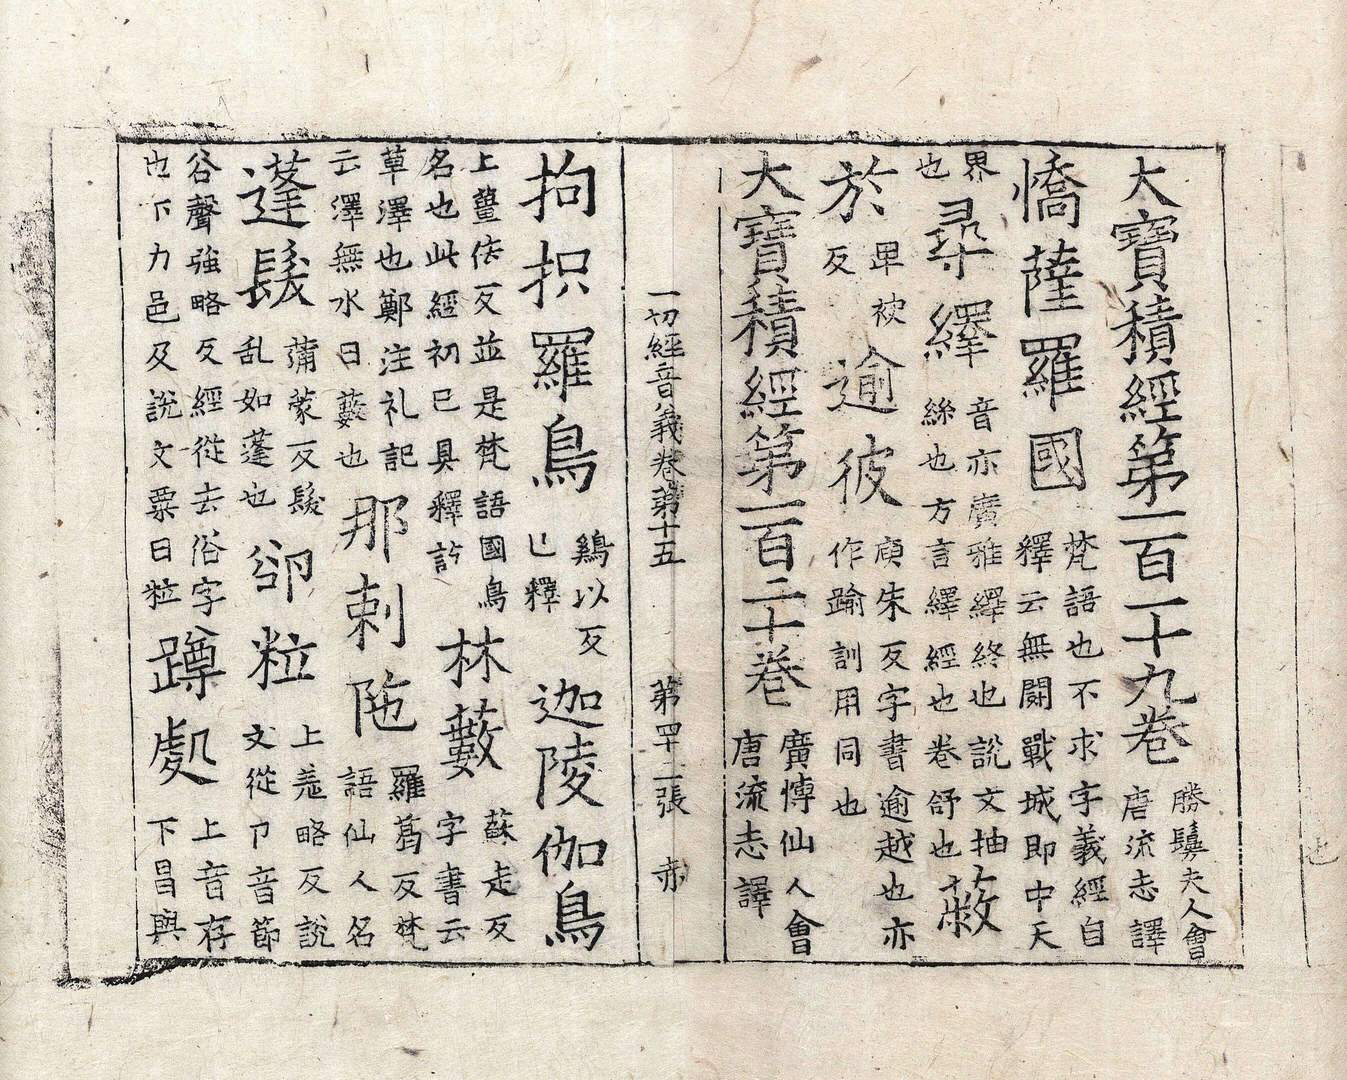 大寶積經第一百一十九卷 勝鬘夫人會
唐流志譯
憍薩羅國 梵語也不求字義經自
釋云無鬪戰城即中天
界
也
尋繹 音亦廣雅繹終也說文抽
絲也方言繹經也卷舒也
蔽
於 卑袂
反
逾彼 庾朱反字書逾越也亦
作踰訓用同也
大寶積經第一百二十卷 廣愽仙人會
唐流志譯
一切經音義卷第十五 第四十二張 赤
拘枳羅鳥 鷄以反
已釋
迦陵伽鳥
上薑佉反並是梵語國鳥
名也此經初已具釋訖
林藪 蘇走反
字書云
草澤也鄭注礼記
云澤無水曰藪也
那剌陁 羅葛反梵
語仙人名
蓬髮 蒲蒙反髮
乱如蓬也
卻粒 上羗略反說
文從卪音節
谷聲強略反經從去俗字
也下力邑及說文粟曰粒
蹲處 上音存
下昌與